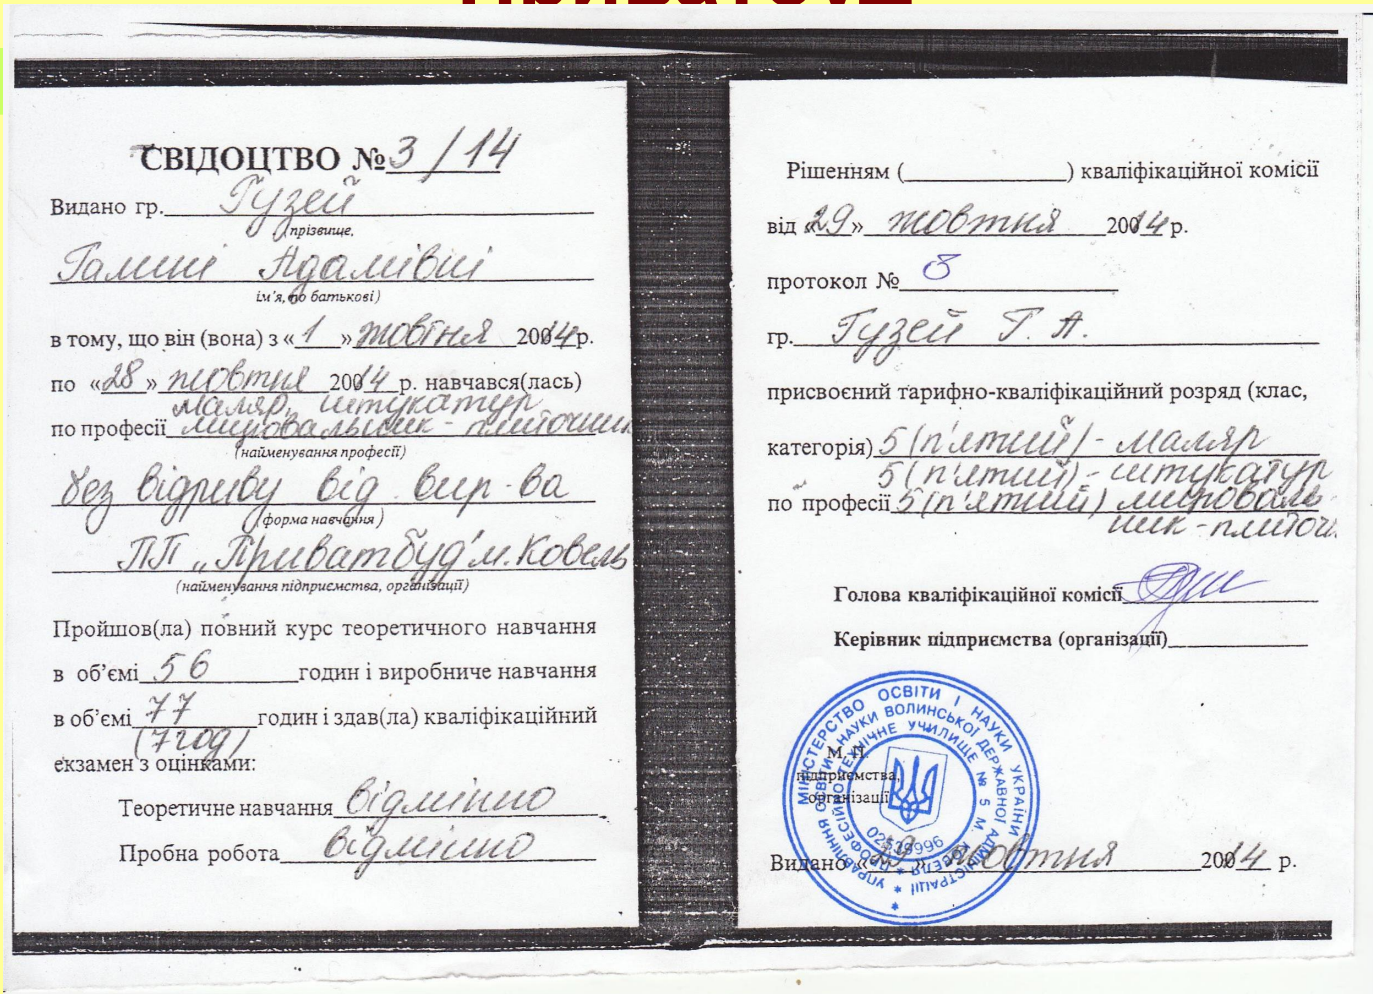 СВІДОЦТВО № 3/14
Видано гр. Гузей
прізвище,
Галині Адамівні
ім'я, по батькові)
в тому, що він (вона) з «1» жовтня 2014р.
по «28» жовтня 2014 р. навчався(лась)
маляр, штукатур
по професії лицювальник-плиточник
(найменування професії)
без відриву від вир-ва
(форма навчання)
ПП „Приватбуд" м. Ковель
(найменування підприємства, організації)
Пройшов(ла) повний курс теоретичного навчання
в об'ємі 56 годин і виробниче навчання
в об'ємі 77 годин і здав(ла) кваліфікаційний
(7 год)
екзамен з оцінками:
Теоретичне навчання відмінно
Пробна робота відмінно
Рішенням ( ) кваліфікаційної комісії
від «29» жовтня 2014 р.
протокол № 8
гр. Гузей Г. А.
присвоєний тарифно-кваліфікаційний розряд (клас,
категорія) 5 (п'ятий) - маляр
5 (п'ятий) - штукатур
по професії 5 (п'ятий) лицюваль-
ник - плиточ
Голова кваліфікаційної комісії
Керівник підприємства (організації)
МІНІСТЕРСТВО ОСВІТИ І НАУКИ УКРАЇНИ
УПРАВЛІННЯ ОСВІТИ І НАУКИ ВОЛИНСЬКОЇ ДЕРЖАВНОЇ АДМІНІСТРАЦІЇ
ПРОФЕСІЙНО-ТЕХНІЧНЕ УЧИЛИЩЕ № 5 М. КОВЕЛЯ
М. П.
підприємства,
організації
Видано « » жовтня 2014 р.